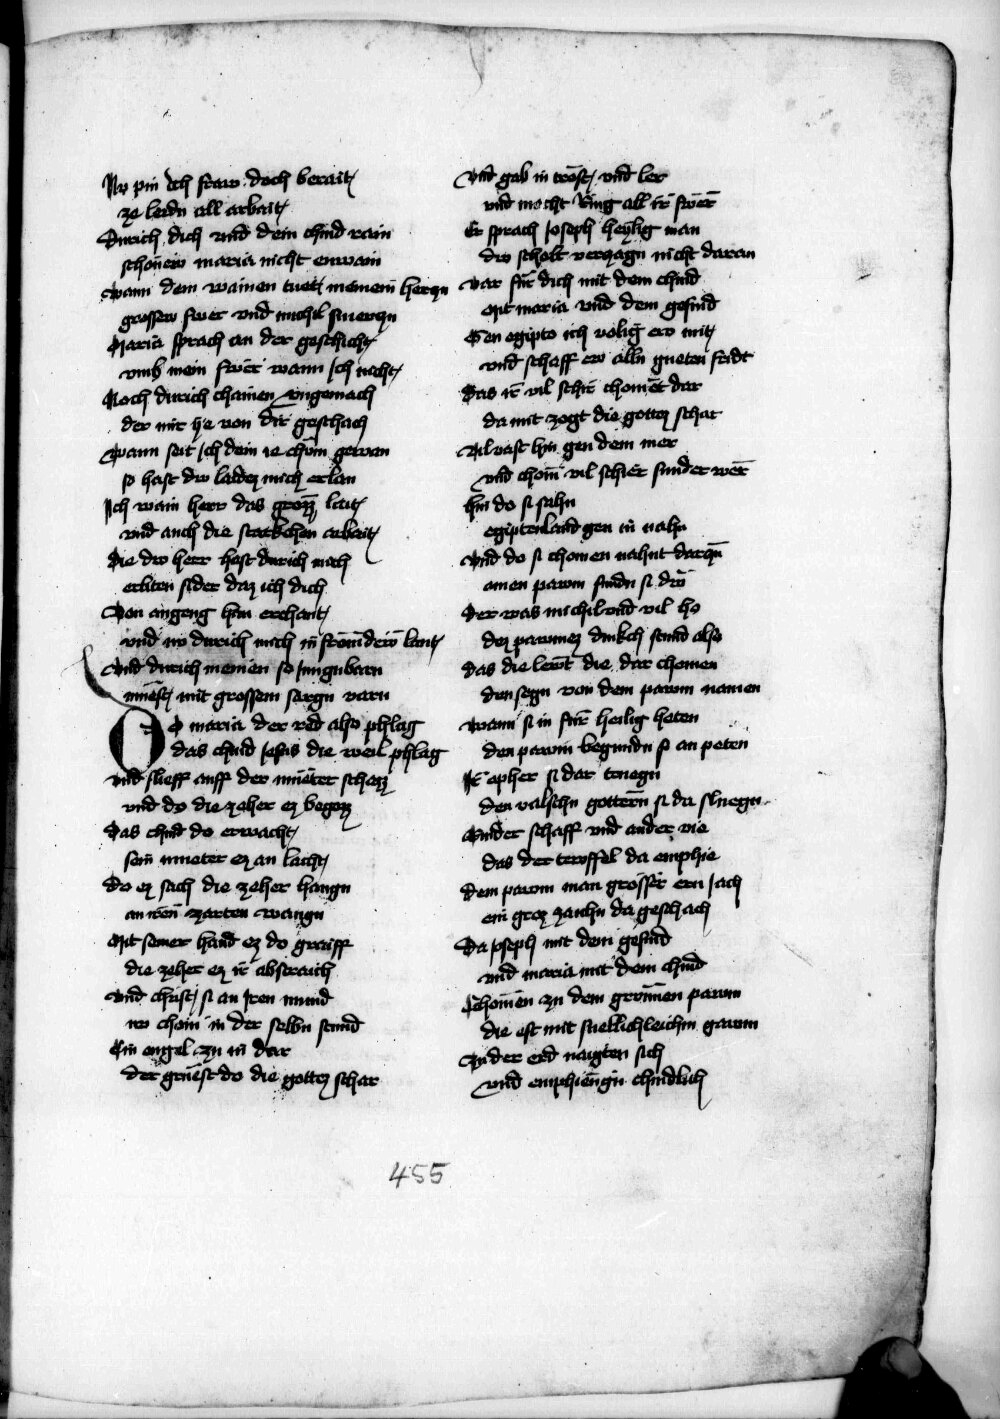 Nv pin ich fraw doch berait
ze leidn all arbait
Durich dich vnd dein chind rain
schonew maria nicht enwain
Wann dem wainen tuet meinem herczn
grossew swer vnd michil smerczn
Maria sprach an der geschicht
vmb mein swer wann ich nicht
Noch durich chainen vngemach
der mir hye von dir geschach
Wann seit ich dein ie chom gewan
so hast dw laidez mich erlan
Ich wain herr das grozz lait
vnd auch die starkchen arbait
Die dw herr hast durich mich
erliten sider daz ich dich
Von angeng han erchant
vnd nv durich mich in fromdew lant
Vnd durich meinen so jungn barn
muest mit grossem sargn varn
Do maria der red also phlag
das chind jesus die weil phlag
vnd slieff auff der mueter schazz
vnd do die zeher ez begozz
Das chind do erwacht
sein mueter ez an lacht
Do ez sach die zeher hangn
an iren zarten wangn
Mit seiner hand ez do graiff
die zeher ez ir abstraich
Vnd christ si an iren mund
nv chom in der selbn stund
Ein engel zu in dar
der gruest do die gottez schar
Vnd gab in trost vnd ler
vnd macht ring all ir swer
Er sprach joseph heylig man
dw scholt verczagn nicht daran
Var fur dich mit dem chind
Mit maria vnd dem gesind
Gen egipto ich volig ew mit
vnd schaff ew alln gueten fridt
Das ir vil schir chomet dar
da mit zogt die gottez schar
Vil vast hin gen dem mer
vnd chom vil schier sunder wer
Hin do si sahn
egiptenland gen in nahn
Vnd do si chomen nahnt darczu
ainen pawm fundn si do
Der was michil vnd vil ho
dez pawmez dinkch stund also
Das die lewt die dar chomen
den segn von dem pawm namen
Wann si in fur heilig heten
den pawm begundn si an peten
Ir opher si dar truegn
den valschn gottern si da sluegn
Rinder schaff vnd ander vie
das der tewffel da emphie
Dem pawm man grosser ern jach
ein groz zaichn da geschach
Da joseph mit dem gesind
vnd maria mit dem chind
Chomen zu dem gronnen pawm
die est mit snellichleichn gawm
Zu der erd naigten sich
vnd emphiengn chindlich
455